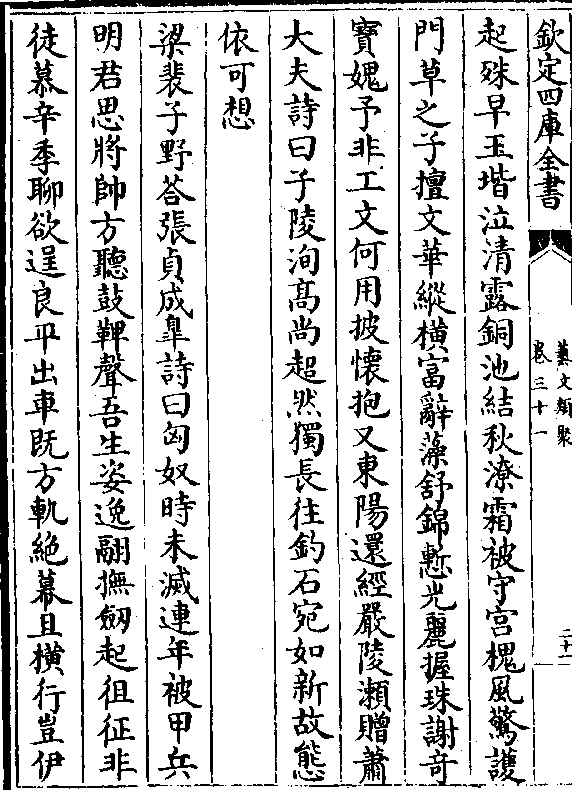 欽定四庫全書
藝文類聚
卷三十一
二十一
起殊早玉堦泣清露銅池結秋潦霜被守宮槐風驚護
門草之子擅文華縱橫富辭藻舒錦慙光麗握珠謝奇
寶媿予非工文何用披懷抱又東陽還經嚴陵瀨贈蕭
大夫詩曰子陵洵髙尚超然獨長往釣石宛如新故態
依可想
梁裴子野荅張貞成臯詩曰匈奴時未滅連年被甲兵
明君思將帥方聽鼓鞞聲吾生姿逸翮撫劒起徂征非
徒慕辛季聊欲逞良平出車既方軌絶幕且橫行豈伊